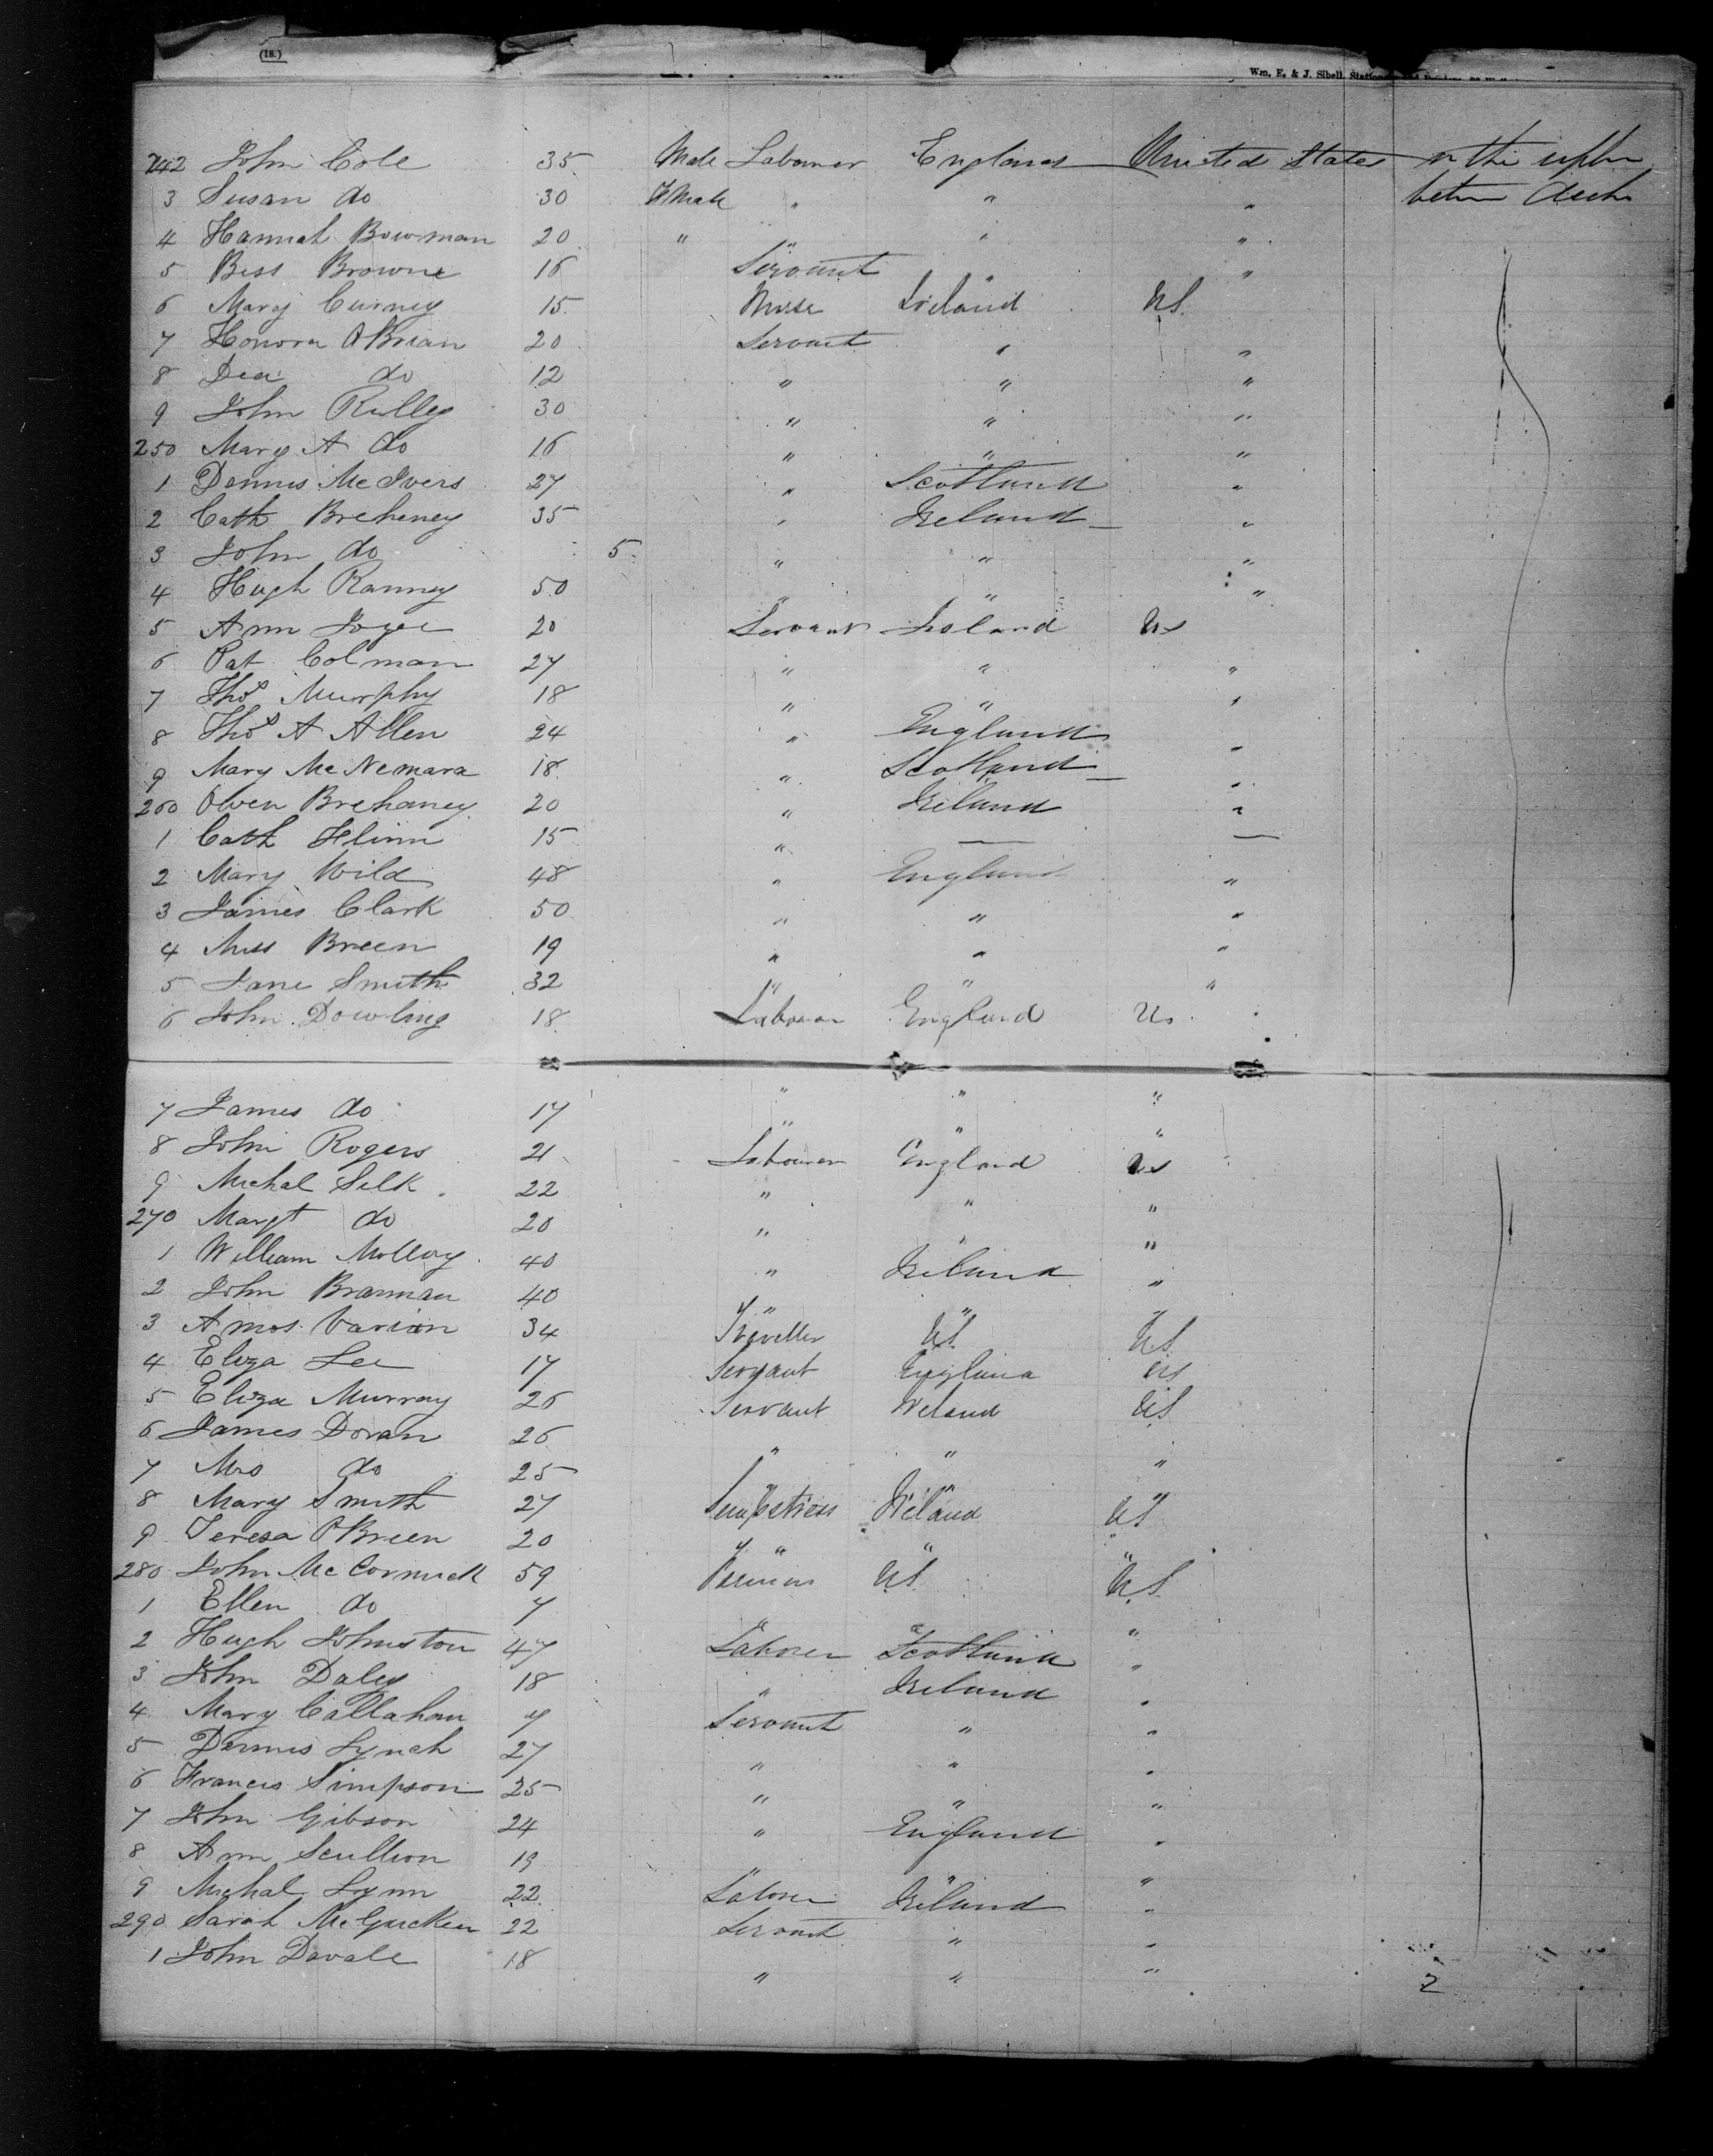 (18.)
Wm. E. & J. Sibell, Station
242 John Cole 35 Male Labourer England United States in the upper
3 Susan do 30 Female " " " between decks
4 Hannah Bowman 20 " " " "
5 Bess Browne 16 Servant " "
6 Mary Curney 15 Nurse Ireland US
7 Honora OBrian 20 Servant " "
8 do 12 " " "
9 John Rulley 30 " " "
250 Mary A do 16 " " "
1 Dennis McIvers 27 " Scotland "
2 Cath Breheney 35 " Ireland "
3 John do 5 " " "
4 Hugh Ranney 50 " " "
5 Ann Joyce 20 Servant Ireland US
6 Pat Colman 27 " " "
7 Thos Murphy 18 " " "
8 Thos A Allen 24 " England "
9 Mary McNemara 18 " Scotland "
260 Owen Brehaney 20 " Ireland "
1 Cath Flinn 15 " — —
2 Mary Wild 48 " England "
3 James Clark 50 " " "
4 Miss Breen 19 " " "
5 Jane Smith 32 " " "
6 John Dowling 18 Labourer England US
7 James do 17 " " "
8 John Rogers 21 Labourer England US
9 Michal Silk 22 " " "
270 Margt do 20 " " "
1 William Molloy 40 " Ireland "
2 John Brannan 40 " " "
3 Amos Varion 34 Traveller US US
4 Eliza Lee 17 Servant England US
5 Eliza Murray 26 Servant Ireland US
6 James Doran 26 " " "
7 Mrs do 25 " " "
8 Mary Smith 27 Sempstress Ireland US
9 Teresa OBreen 20 " " "
280 John McCormick 59 US US
1 Ellen do 7 " " "
2 Hugh Johnston 47 Laborer Scotland "
3 John Daley 18 " Ireland "
4 Mary Callahan 7 Servant " "
5 Dennis Lynch 27 " " "
6 Francis Simpson 25 " " "
7 John Gibson 24 " England "
8 Ann Scullion 19 " " "
9 Michal Lynn 22 Laborer Ireland "
290 Sarah McGucken 22 Servant " "
1 John Davale 18 " " "
2